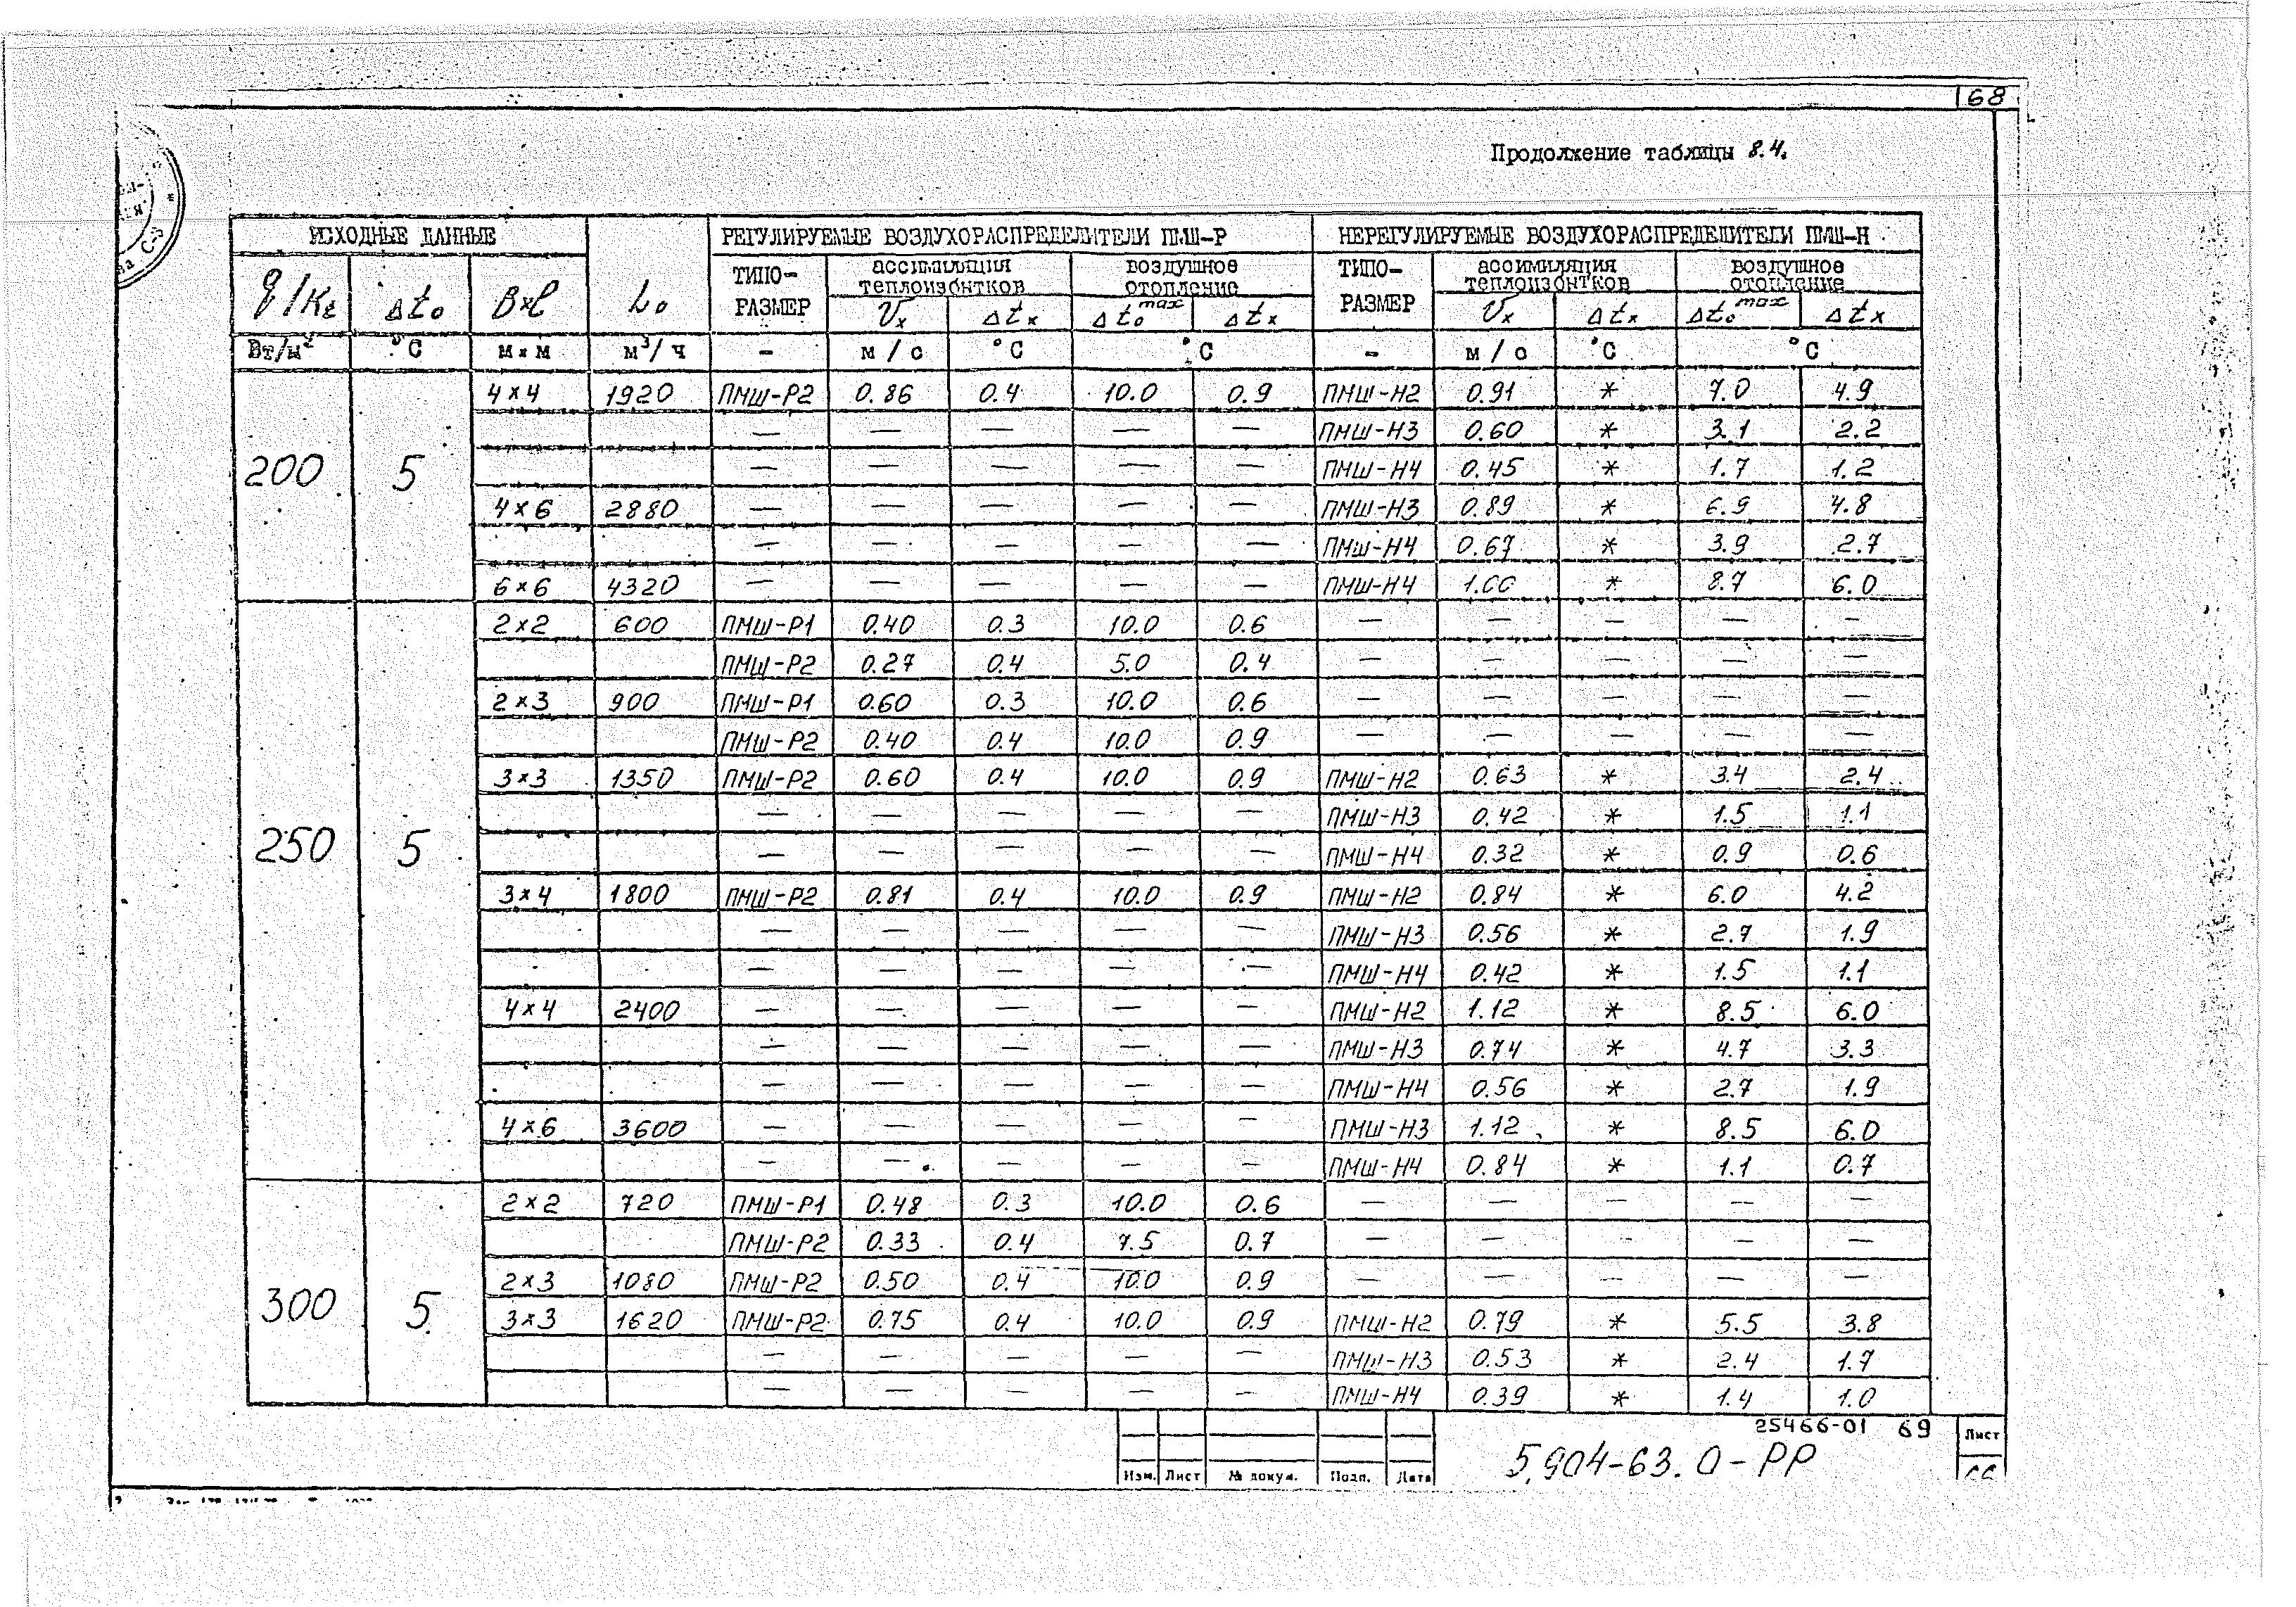 68
Продолжение таблицы 8.4.
ИСХОДНЫЕ ДАННЫЕ РЕГУЛИРУЕМЫЕ ВОЗДУХОРАСПРЕДЕЛИТЕЛИ ПМШ-Р НЕРЕГУЛИРУЕМЫЕ ВОЗДУХОРАСПРЕДЕЛИТЕЛИ ПМШ-Н
q/Kε Δto B×ℓ Lo ТИПО-РАЗМЕР ассимиляция теплоизбытков воздушное отопление ТИПО-РАЗМЕР ассимиляция теплоизбытков воздушное отопление
Vx Δtx Δto max Δtx Vx Δtx Δto max Δtx
Вт/м² °C м×м м³/ч - м/с °C °C - м/с °C °C
200 5
4×4 1920 ПМШ-Р2 0.86 0.4 10.0 0.9 ПМШ-Н2 0.91 * 7.0 4.9
— — — — — ПМШ-Н3 0.60 * 3.1 2.2
— — — — — ПМШ-Н4 0.45 * 1.7 1.2
4×6 2880 — — — — — ПМШ-Н3 0.89 * 6.9 4.8
— — — — — ПМШ-Н4 0.67 * 3.9 2.7
6×6 4320 — — — — — ПМШ-Н4 * 8.7 6.0
250 5
2×2 600 ПМШ-Р1 0.40 0.3 10.0 0.6 — — — — —
ПМШ-Р2 0.27 0.4 5.0 0.4 — — — — —
2×3 900 ПМШ-Р1 0.60 0.3 10.0 0.6 — — — — —
ПМШ-Р2 0.40 0.4 10.0 0.9 — — — — —
3×3 1350 ПМШ-Р2 0.60 0.4 10.0 0.9 ПМШ-Н2 0.63 * 3.4 2.4
— — — — — ПМШ-Н3 0.42 * 1.5 1.1
— — — — — ПМШ-Н4 0.32 * 0.9 0.6
3×4 1800 ПМШ-Р2 0.81 0.4 10.0 0.9 ПМШ-Н2 0.84 * 6.0 4.2
— — — — — ПМШ-Н3 0.56 * 2.7 1.9
— — — — — ПМШ-Н4 0.42 * 1.5 1.1
4×4 2400 — — — — — ПМШ-Н2 1.12 * 8.5 6.0
— — — — — ПМШ-Н3 0.74 * 4.7 3.3
— — — — — ПМШ-Н4 0.56 * 2.7 1.9
4×6 3600 — — — — — ПМШ-Н3 1.12 * 8.5 6.0
— — — — — ПМШ-Н4 0.84 * 1.1 0.7
300 5
2×2 720 ПМШ-Р1 0.48 0.3 10.0 0.6 — — — — —
ПМШ-Р2 0.33 0.4 7.5 0.7 — — — — —
2×3 1080 ПМШ-Р2 0.50 0.4 10.0 0.9 — — — — —
3×3 1620 ПМШ-Р2 0.75 0.4 10.0 0.9 ПМШ-Н2 0.79 * 5.5 3.8
— — — — — ПМШ-Н3 0.53 * 2.4 1.7
— — — — — ПМШ-Н4 0.39 * 1.4 1.0
25466-01 69
Изм. Лист № докум. Подп. Дата
5.904-63.0-РР
Лист